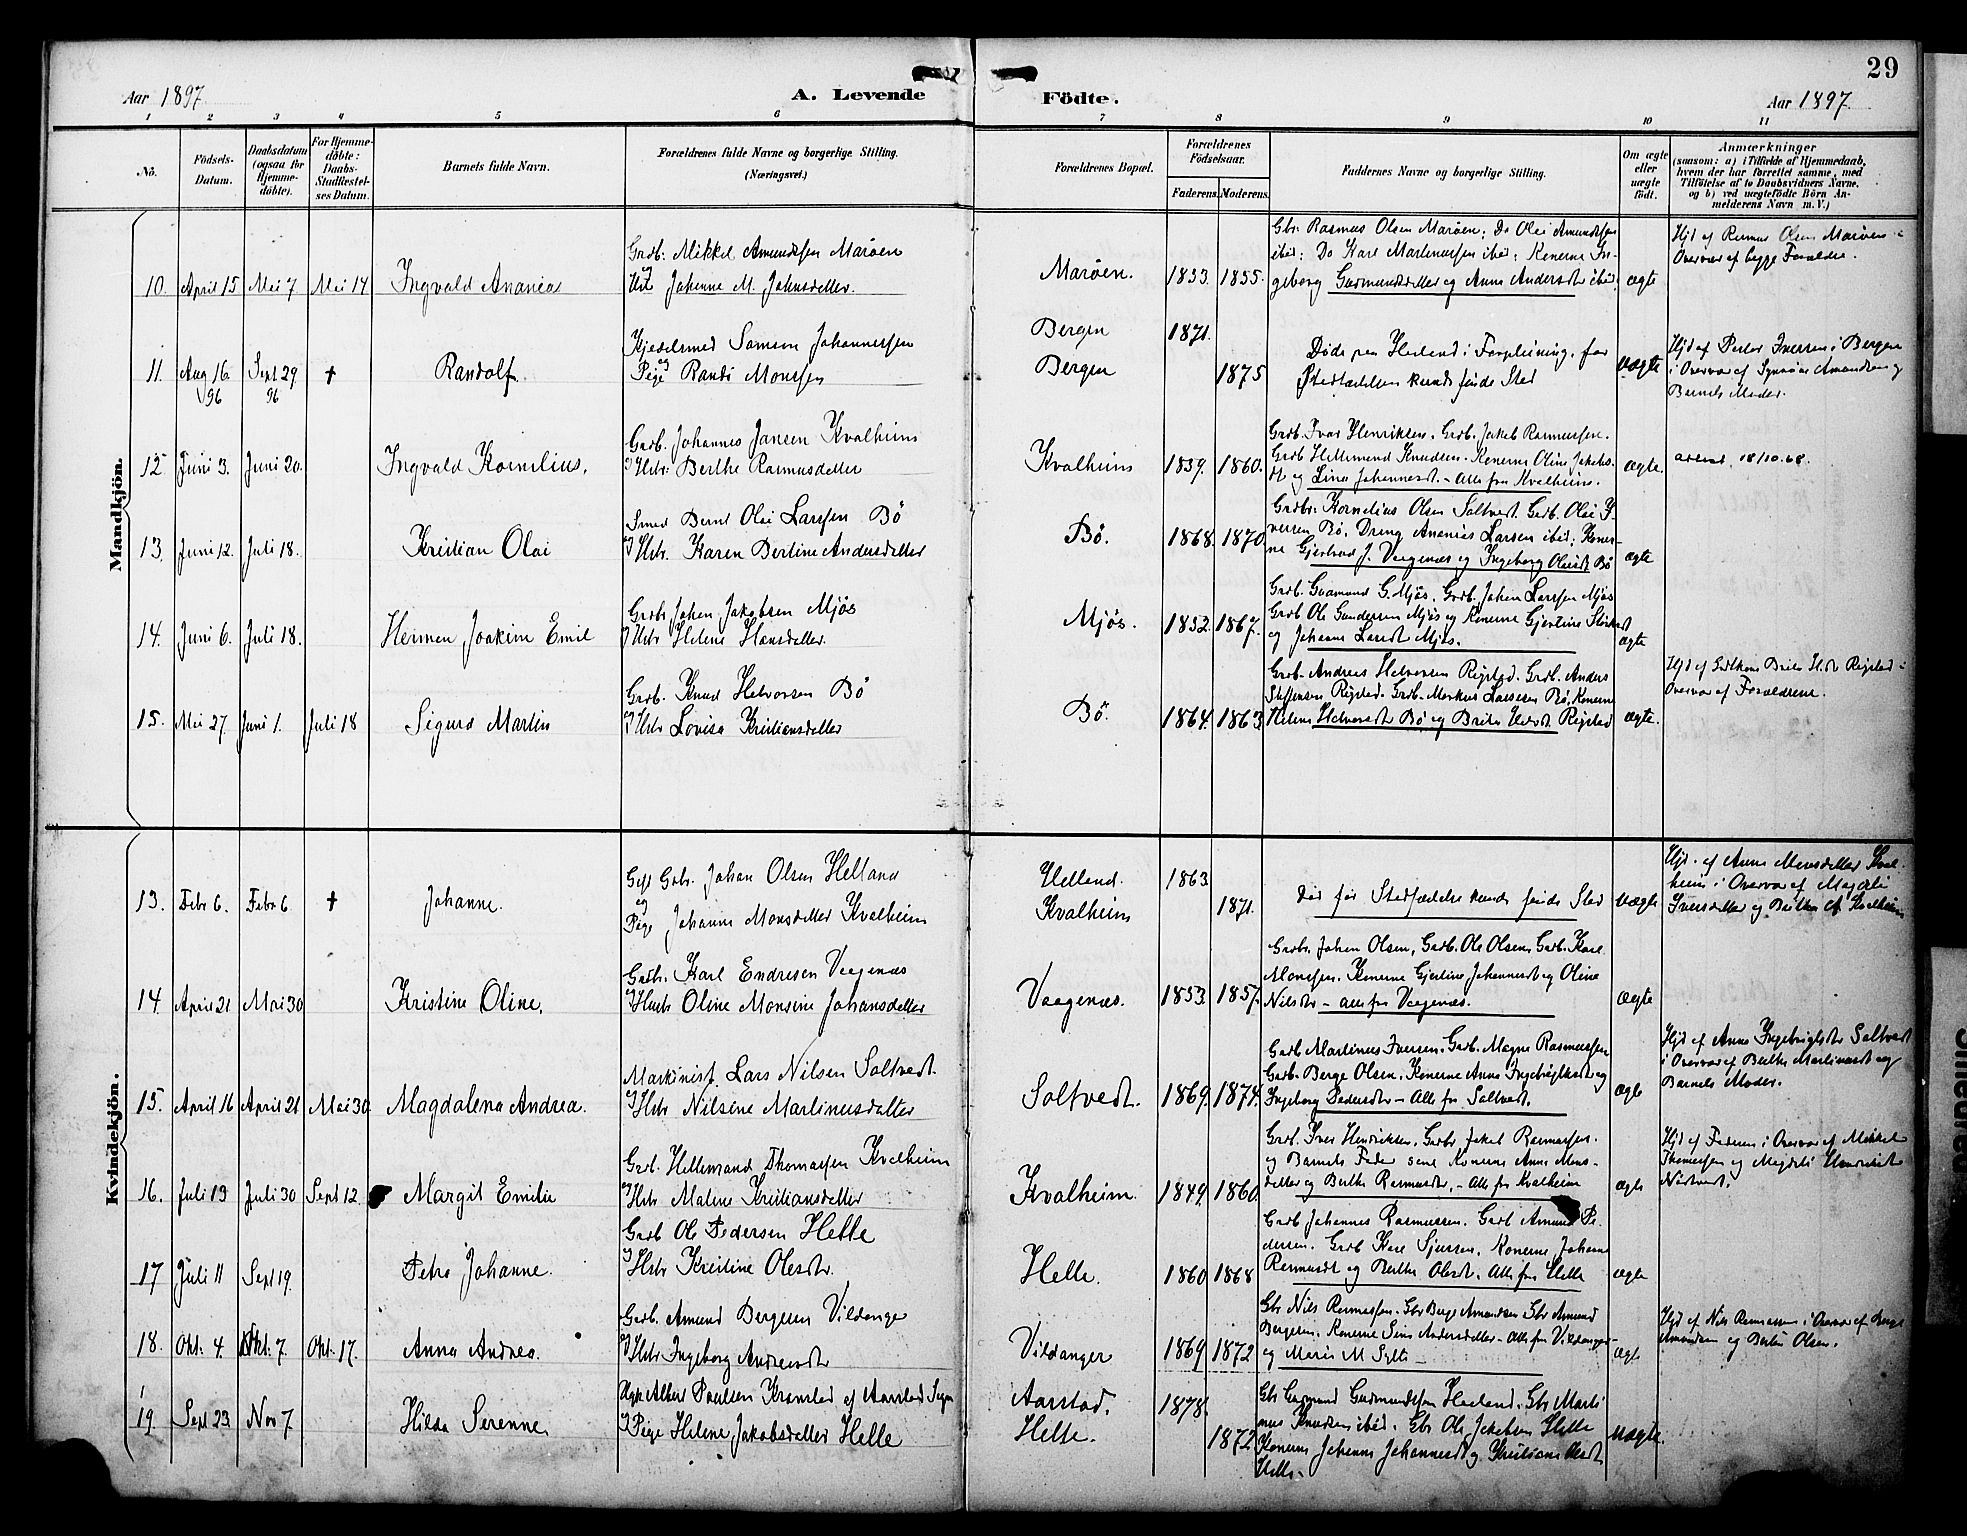 29
Aar 1897
A. Levende
Födte.
Aar 1897.
1 2 3 4 5 6 7 8 9 10 11
No.
Födsels-
Datum.
Daabsdatum
(ogsaa for
Hjemme-
döbte).
For Hjemme-
döbte:
Daabs-
Stadfæstel-
ses Datum.
Barnets fulde Navn.
Forældrenes fulde Navne og borgerlige Stilling.
(Næringsvei.)
Forældrenes Bopæl.
Forældrenes
Födselsaar.
Faderens. Moderens.
Faddernes Navne og borgerlige Stilling.
Om ægte
eller
uægte
födt.
Anmærkninger
(saasom: a) i Tilfælde af Hjemmedaab,
hvem der har forrettet samme, med
Tilföielse af to Daabsvidners Navne,
og b) ved uægtefödte Börn An-
melderens Navn m. V.)
Mandkjön.
10. April 15 Mai 7. Mai 14 Ingvald Ananias
Grdb. Mikkel Amundsen Marøen
og Hst Johanne M. Johnsdatter.
Marøen. 1853. 1855.
Gbr. Rasmus Olsen Marøen; Do Olai Amundsen
ibid; Do Karl Martinussen ibid; Konerne In-
geborg Gudmundsdatter og Anna Andersdt ibid. ægte
Hjd af Rasmus Olsen Marøen i
Overvær af begge Forældre.
11. Aug 16. 96 Sept 29. 96 † Randolf.
Kjedelsmed Samson Johannessen
og Pige Randi Monsen
Bergen 1871.
Bergen 1875
Døde paa Herland i Forpleining, før
Stadfæstelsen kunde finde Sted
uægte
Hjd af Pastor Iversen i Bergen
i Overvær af Synnøve Amundsen og
Barnets Moder.
12. Juni 3. Juni 20. Ingvald Kornilius.
Grdb. Johannes Jansen Kvalheim
& Hstr. Berthe Rasmusdatter
Kvalheim 1839. 1860.
Grdb. Ivar Henriksen. Grdb. Jakob Rasmussen.
Grdb Hillemund Knudsen. Konerne Oline Jakobs-
dt og Lina Johannesdt. - Alle fra Kvalheim.
ægte.
attest. 18/10.68.
13. Juni 12. Juli 18. Kristian Olai
Smed Bernt Olai Larssen Bö
& Hstr. Karen Bertine Andersdatter
Bö. 1868. 1870
Grdbr. Kornelius Olsen Saltvedt. Grdb. Olai I-
versen Bö, Dreng Ananias Larsen ibid; Koner-
ne Gjertrud J. Vaagenæs og Ingeborg Olaisdt Bö
ægte
14. Juni 6. Juli 18. Herman Joakim Emil
Grdbr Johan Jakobsen Mjøs
& Hstr Helene Hansdatter.
Mjøs. 1852. 1867.
Grdb. Guamund G. Mjøs. Grdb. Johan Larssen Mjøs
Grdb Ole Gundersen Mjøs og Konerne Gjertine
og Johanna Larsdt Mjøs.
ægte
15. Mai 27. Juni 1. Juli 18 Sigurd Martin
Grdb. Knud Halvorsen Bö
& Hstr Lovisa Kristiansdatter
Bö. 1864. 1863
Grdb. Andreas Halvorsen Rigstad. Grdb. Anders
Steffensen Rigstad. Grdb. Markus Larssen Bö. Konerne
Helene Halvorsdt Bö og Brita Halvdt Rigstad
ægte.
Hjd af Grdkone Brita Hdt Rigstad i
Overvær af Forældrene.
Kvindekjön.
13. Febr 6. Febr 6 † Johanne.
Gift Grbr. Johan Olsen Helland
og Pige Johanna Monsdatter Kvalheim
Helland. 1863
Kvalheim 1871.
Død før Stadfæstelse kunde finde Sted
uægte
Hjd. af Anna Monsdatter Kval-
heim i Overvær af Magdeli
Iversdatter og Berthe A. Kvalheim
14. April 21 Mai 30 Kristine Oline.
Grdbr. Karl Endresen Vaagenæs
& Hustr Oline Monsine Johansdatter
Vaagenæs. 1853. 1857.
Grdbr. Johan Olsen, Grdb. Ole Olsen, Grdb. Karl
Monsen. Konerne Gjertine Johannesdt og Oline
Nilsdtr - alle fra Vaagenæs.
ægte
15. April 16 April 21 Mai 30 Magdalena Andrea.
Maskinist. Lars Nilsen Saltvedt.
& Hstr Nilsine Martinusdatter
Saltvedt. 1869. 1874.
Grdb Martinus Iversen. Grdb. Magne Rasmussen
Grdb. Berge Olsen. Konerne Anna Ingebrigtsdtr og
Ingeborg Pedersdtr - Alle fra Saltvedt.
ægte
Hjd af Anna Ingebrigtsdtr Saltvedt
i Overvær af Berthe Martinusdt og
Barnets Moder.
16. Juli 13 Juli 30 Sept 12. Margit Emilie
Grdb. Hellemund Thomassen Kvalheim
& Hstr Malene Kristiansdatter
Kvalheim. 1849. 1860.
Grdb. Iver Henriksen. Grdbr Jakob Rasmussen.
og Barnets Fader samt Konerne Anna Mons-
datter og Berthe Rasmusdtr. - Alle fra Kvalheim
ægte
Hjd af Faderen i Overvær af Mikkel
Thomassen og Magdeli
17 Juli 11 Sept 19. Petra Johanne.
Grdb Ole Pedersen Helle
& Hstr Kristine Olesdtr.
Helle. 1860 1868
Grdb Johannes Rasmussen. Grdb Amund Pe-
dersen. Grdb Karl Sjursen. Konerne Johanna
Rasmusdt og Berthe Olesdt. Alle fra Helle
ægte
18. Okt. 4. Okt. 7. Okt. 17. Anna Andrea.
Grdb. Amund Bergesen Vildanger
& Hstr Ingeborg Andreasdtr
Vildanger 1869 1872
Gbr Nils Rasmussen. Gbr Berge Amundsen. Gbr Amund
Bergesen. Konerne Sina Andersdatter - Alle fra Vildanger
og Marie M Sylta -
ægte
Hjd af Nils Rasmussen i Overvær af Berge
Amundsen og Olsen.
19. Sept 23 Nov 7 Hilda Serenne.
Ugk Albert Paulsen Kronstad af Aarstad Sogn
& Pige Helene Jakobsdatter Helle
Aarstad. 1878.
Helle. 1872
Gbr Gudmundssen Herland. Gbr Marti-
nus Knudsen ibid. Gbr Ole Jakobsen Helle
Konerne Johanna Johannesdt og Kristiane Olesdt
Helle.
uægte.